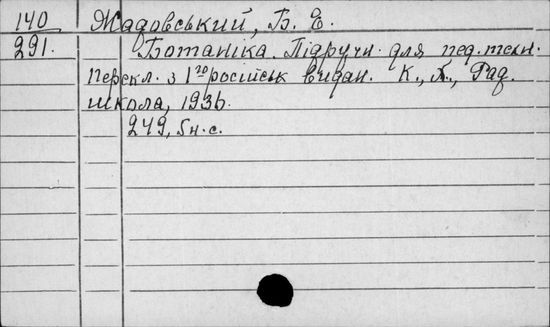 140 Жадовський, Б. Е.
291. Ботаніка. Підручн. для пед. техн.
Перекл. з 1го російськ видан. К., Х., Рад.
школа, 1936.
249, 5н. с.